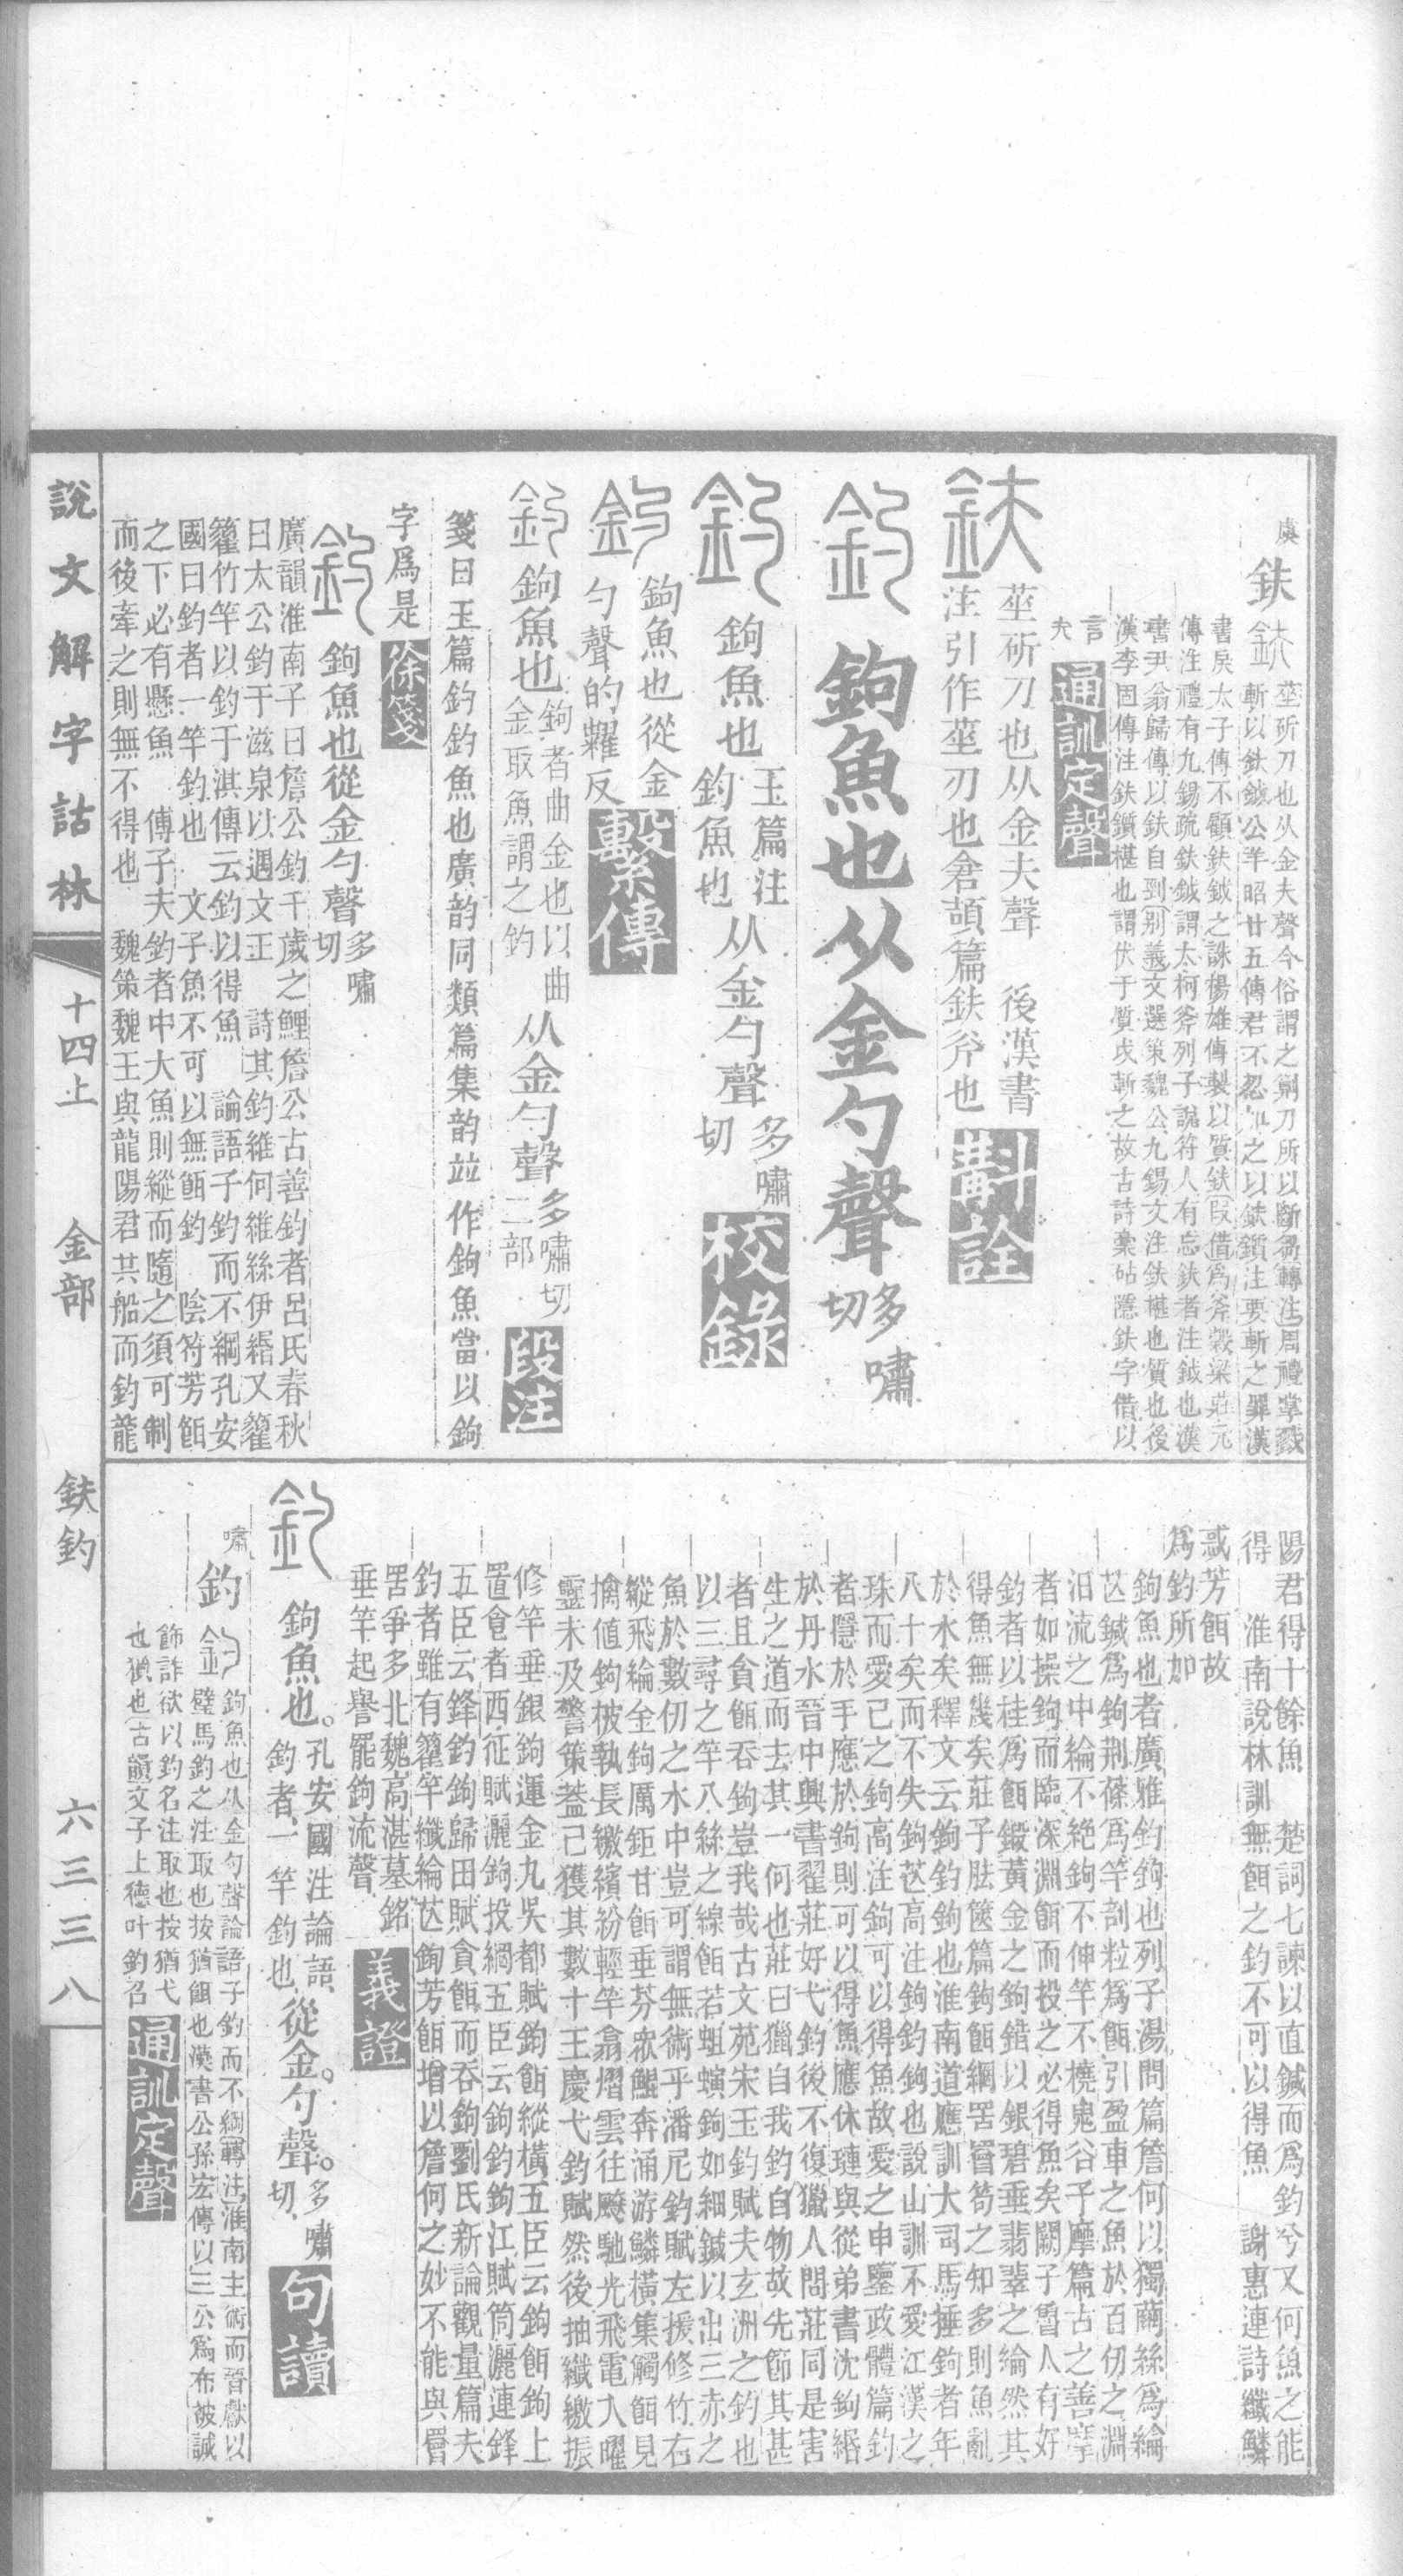 虞
鈇
莝斫刀也从金夫聲今俗謂之鍘刀所以斷芻轉注周禮掌戮
斬以鈇鉞公羊昭廿五傳君不忍加之以鈇鑕注要斬之罪漢
書戾太子傳不顧鈇鉞之誅楊雄傳製以質鈇叚借爲斧穀梁莊元
傳注禮有九錫疏鈇鉞謂大柯斧列子說符人有忘鈇者注鉞也漢
書尹翁歸傳以鈇自剄別義文選策魏公九錫文注鈇椹也質也後
漢李固傳注鈇鑕椹也謂伏于質戉斬之故古詩槀砧隱鈇字借以
言夫
通訓定聲
莝斫刀也从金夫聲 後漢書
注引作莝刃也倉頡篇鈇斧也
斠詮
鉤魚也从金勺聲
多嘯切
鉤魚也
玉篇注
釣魚也
从金勺聲
多嘯切
校錄
鉤魚也從金
勺聲的糶反
繫傳
鉤魚也
鉤者曲金也以曲
金取魚謂之釣
从金勺聲
多嘯切
二部
段注
箋曰玉篇釣釣魚也廣韵同類篇集韵竝作鉤魚當以鉤
字爲是
徐箋
鉤魚也從金勺聲
多嘯切
廣韻淮南子曰詹公釣千歲之鯉詹公古善釣者呂氏春秋
曰太公釣于滋泉以遇文王 詩其釣維何維絲伊緡又籊
籊竹竿以釣于淇傳云釣以得魚 論語子釣而不綱孔安
國曰釣者一竿釣也 文子魚不可以無餌釣 陰符芳餌
之下必有懸魚 傅子夫釣者中大魚則縱而隨之須可制
而後牽之則無不得也 魏策魏王與龍陽君共船而釣龍
陽君得十餘魚 楚詞七諫以直鍼而爲釣兮又何魚之能
得 淮南說林訓無餌之釣不可以得魚 謝惠連詩纖鱗
惑芳餌故
爲釣所加
鉤魚也者廣雅釣鉤也列子湯問篇詹何以獨繭絲爲綸
芒鍼爲鉤荆篠爲竿剖粒爲餌引盈車之魚於百仞之淵
汩流之中綸不絕鉤不伸竿不橈鬼谷子摩篇古之善摩
者如操鉤而臨深淵餌而投之必得魚矣闕子魯人有好
釣者以桂爲餌鍛黃金之鉤錯以銀碧垂翡翠之綸然其
得魚無幾矣莊子胠篋篇鉤餌網罟罾笱之知多則魚亂
於水矣釋文云鉤釣鉤也淮南道應訓大司馬捶鉤者年
八十矣而不失鉤芒高注鉤釣鉤也說山訓不愛江漢之
珠而愛己之鉤高注鉤可以得魚故愛之申鑒政體篇釣
者隱於手應於鉤則可以得魚應休璉與從弟書沈鉤緡
於丹水晉中興書翟莊好弋釣後不復獵人問莊同是害
生之道而去其一何也莊曰獵自我釣自物故先節其甚
者且貪餌吞鉤豈我哉古文苑宋玉釣賦夫玄洲之釣也
以三尋之竿八絲之線餌若蛆螾鉤如細鍼以出三赤之
魚於數仞之水中豈可謂無術乎潘尼釣賦左援修竹右
縱飛綸金鉤厲鉅甘餌垂芬衆鯤奔涌游鱗橫集觸餌見
擒値鉤被執長繳繽紛輕竿翕熠雲往颷馳光飛電入曜
靈未及警策蓋已獲其數十王慶弋釣賦然後抽纖繳振
修竿垂銀鉤運金九吳都賦鉤餌縱橫五臣云鉤餌鉤上
置食者西征賦灑鉤投網五臣云鉤釣鉤江賦筒灑連鋒
五臣云鋒釣鉤歸田賦貪餌而吞鉤劉氏新論觀量篇夫
釣者雖有籊竿纖綸芒鉤芳餌增以詹何之妙不能與罾
罟爭多北魏高湛墓銘
垂竿起譽罷鉤流聲
義證
鉤魚也。
孔安國注論語
釣者一竿釣也
從金。勺聲。
多嘯切
句讀
嘯
釣
鉤魚也从金勺聲論語子釣而不綱轉注淮南主術而晉獻以
璧馬釣之注取也按猶餌也漢書公孫宏傳以三公爲布被誠
飾詐欲以釣名注取也按猶弋
也猶也古韻文子上德叶釣召
通訓定聲
說文解字詁林
十四上
金部
鈇釣
六三三八